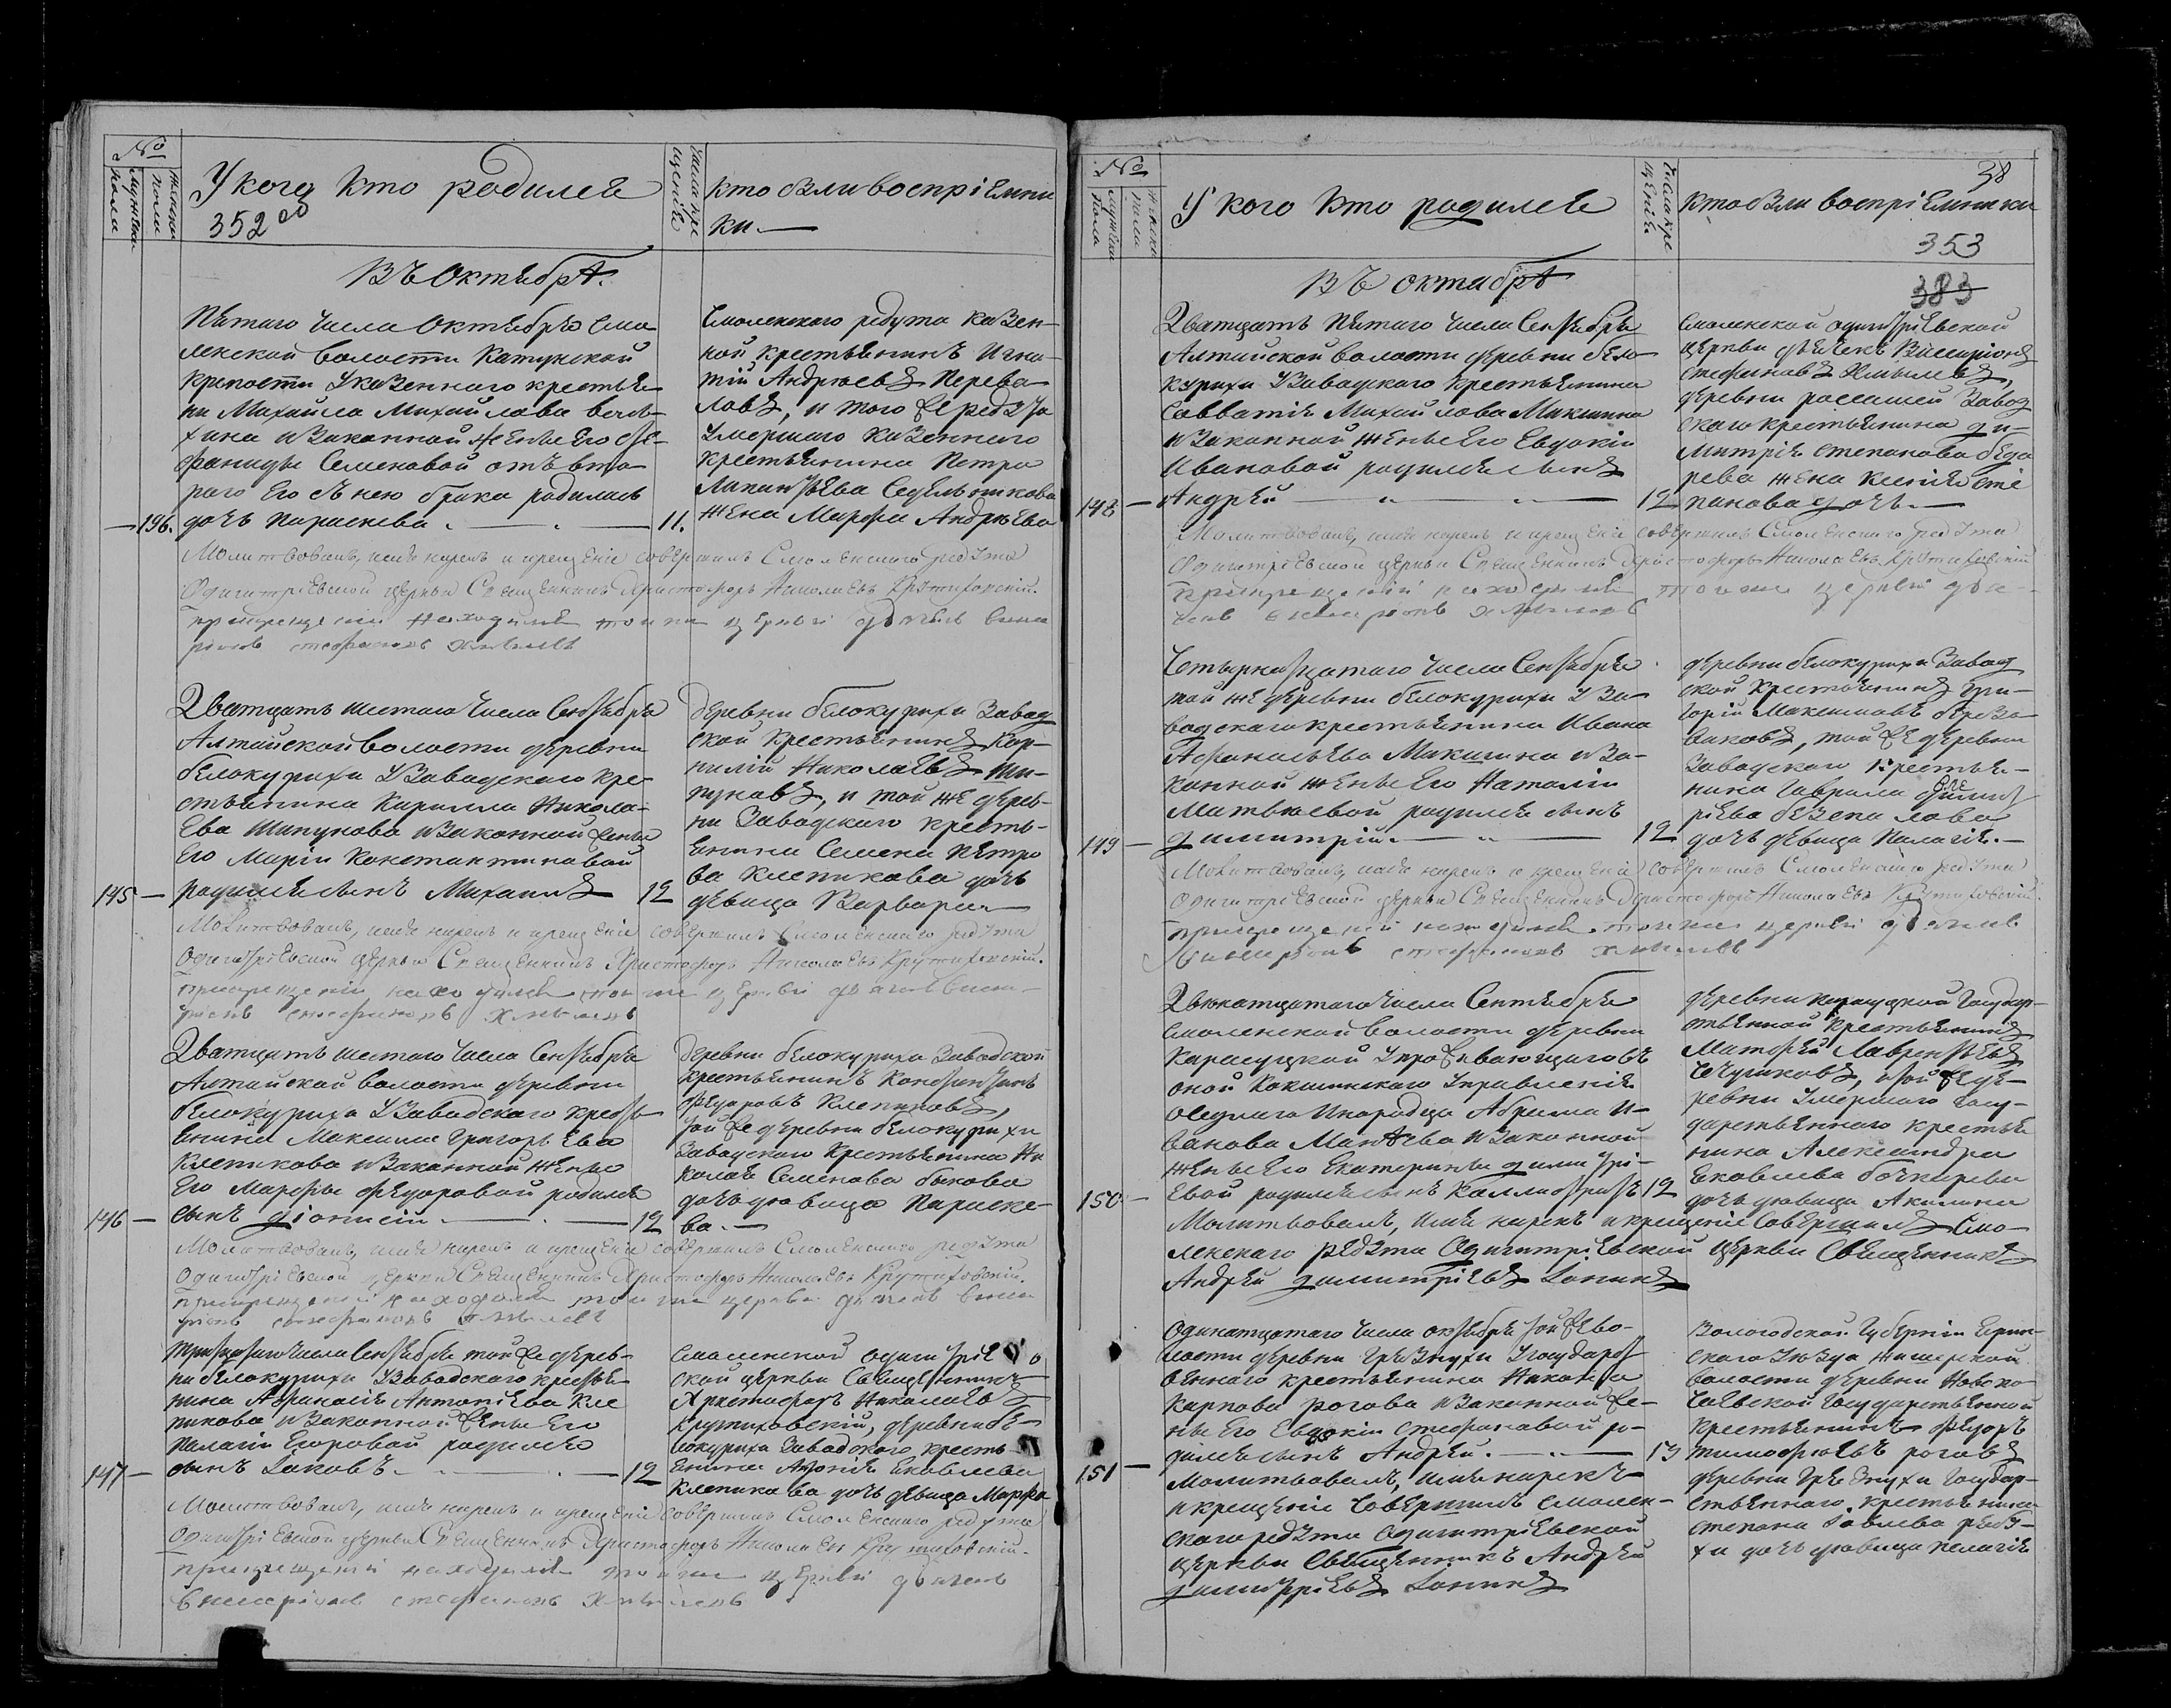 №
Мужеска пола
Женска пола
У кого кто родился
35200
Числа кре
щенія
кто были воспріемни
ки.
Въ Октябрѣ.
Пятаго числа Октября Смо
ленской волости Катунской
крепости у казеннаго крестья
на Михайла Михайлова
и законной жены его
Семеновой отъ вто
раго его съ нею брака родилась
196. дочь Параскева. 11.
Смоленскаго редута казен
ной крестьянинъ Игна
тій Андреевъ Перева
ловъ, и того же редута
умершаго казеннаго
крестьянина Петра
Седельникова
жена Марфа Андреева
Молитвовалъ, имя нарекъ и крещеніе совершилъ Смоленскаго редута
Одигитріевской церкви Священникъ Христофоръ Николаевъ Крутиховскій.
при крещеніи находился тоя же церкви дьячекъ Висса
ріонъ Стефановъ Хмылевъ
Дватцать шестаго числа Сентября
Алтайской волости деревни
белокурихи у Заводскаго кре
стьянина Кирилла Никола
ева Шипунова и законной жены
его Маріи Константиновой
145 родился сынъ Михаилъ 12
деревни белокурихи Завод
ской крестьянинъ Кор
нилій Николаевъ Ши
пуновъ, и той же дерев
ни Заводскаго кресть
янина Семена Петро
ва Клепикова дочь
девица Варвара
Молитвовалъ, имя нарекъ и крещеніе совершилъ Смоленскаго редута
Одигитріевской церкви Священникъ Христофоръ Николаевъ Крутиховскій.
при крещеніи находился тоя же церкви дьячекъ Висса
ріонъ Стефановъ Хмылевъ
Дватцать шестаго числа Сентября
Алтайской волости деревни
белокуриха у Заводскаго кресть
янина Максима Григорьева
Клепикова и законной жены
его Марфы Федоровой родился
146 сынъ Діонисій. 12
деревни белокуриха Заводской
крестьянинъ Константинъ
Федоровъ Клепиковъ,
той же деревни белокурихи
Заводскаго крестьянина Ни
колая Семенова быкова
дочь девица Параске
ва.
Молитвовалъ, имя нарекъ и крещеніе совершилъ Смоленскаго редута
Одигитріевской церкви Священникъ Христофоръ Николаевъ Крутиховскій.
при крещеніи находился тоя же церкви дьячекъ Висса
ріонъ Стефановъ Хмылевъ
Тритцатаго числа Сентября той же дерев
ни белокурихи у Заводскаго крестья
нина Афанасія Антонiева Кле
пикова и законной жены его
Пелагіи Егоровой родился
147 сынъ Іаковъ. 12
Смоленской одигитріев
ской церкви Священникъ
Христофоръ Николаевъ
Крутиховскій, деревни бе
локуриха Заводскаго кресть
янина Яковлева
Клепикова дочь девица Марфа
Молитвовалъ, имя нарекъ и крещеніе совершилъ Смоленскаго редута
Одигитріевской церкви Священникъ Христофоръ Николаевъ Крутиховскій.
при крещеніи находился тоя же церкви дьячекъ
Виссаріонъ Стефановъ Хмылевъ
№
Мужеска пола
Женска пола
У кого кто родился
Числа кре
щенія
38
кто были воспріемники
353
383
Въ октябрѣ
Дватцать пятаго числа Сентября
Алтайской волости деревни бело
курихи у Заводскаго крестьянина
Савватія Михайлова Макшина
и законной жены его Евдокіи
Ивановой родился сынъ
148 Андрей 12
Смоленской одигитріевской
церкви дьячекъ Виссаріонъ
Стефановъ Хмылевъ,
деревни Завод
скаго крестьянина Ди
митрія Степанова
рева жена Ксенія Сте
панова дочь.
Молитвовалъ, имя нарекъ и крещеніе совершилъ Смоленскаго редута
Одигитріевской церкви Священникъ Христофоръ Николаевъ Крутиховскій
при крещеніи находился тоя же церкви дья
чекъ Виссаріонъ Хмылевъ
Четырнатцатаго числа Сентября
той же деревни белокурихи у За
водскаго крестьянина Ивана
Афанасьева Макшина и за
конной жены его Наталіи
Матвеевой родился сынъ
149 Димитрій. 12
деревни белокурихи Завод
ской крестьянинъ Гри
горій Максимовъ
той же деревни
Заводскаго крестья
нина Гаврила Дими
ріева
дочь девица Палагія.
Молитвовалъ, имя нарекъ и крещеніе совершилъ Смоленскаго редута
Одигитріевской церкви Священникъ Христофоръ Николаевъ Крутиховскій.
при крещеніи находился тоя же церкви дьячекъ
Виссаріонъ Стефановъ Хмылевъ
Двенатцатаго числа Сентября
Смоленской волости деревни
Карасуцкой у проживающаго въ
оной Кокшинскаго Управленія
оседлаго инородца Абрама И
ванова и законной
жены его Екатерины Димитрі
евой родился сынъ Каллистратъ 12
150
деревни Карасуцкой Государ
ственной крестьянинъ
Матфей Лаврентьевъ
той же де
ревни умершаго госу
дарственнаго крестья
нина Александра
Яковлева
дочь девица Акилина
Молитвовалъ, имя нарекъ и крещеніе совершилъ Смо
ленскаго редута Одигитріевской церкви Священникъ
Андрей Димитріевъ
Одинатцатаго числа октября той же во
лости деревни Грязнухи у Государст
веннаго крестьянина Никона
Карпова Рогова и законной же
ны его Евдокіи Стефановой ро
дился сынъ Андрей. 13
151
Вологодской Губерніи
скаго уезда
волости деревни
Государственной
крестьянинъ Федоръ
Тимофеевъ Роговъ
деревни Грязнухи Государ
ственнаго крестьянина
Степана
дочь девица Пелагія
Молитвовалъ, имя нарекъ
и крещеніе совершилъ Смолен
скаго редута Одигитріевской
церкви Священникъ Андрей
Димитріевъ